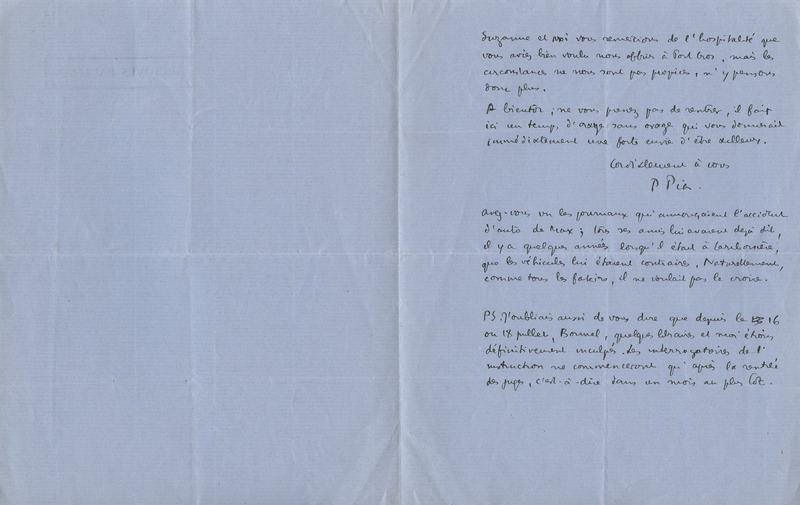 Suzanne et moi vous remercions de l'hospitalité que
vous aviez bien voulu nous offrir à Port Cros, mais les
circonstances ne nous sont pas propices, n'y pensons
donc plus.
A bientôt ; ne vous pressez pas de rentrer, il fait
ici un temps d'orage sans orage qui vous donnerait
immédiatement une forte envie d'être ailleurs.
Cordialement à vous
P Pia.
Avez-vous vu les journaux qui annonçaient l'accident
d'auto de Max ; tous ses amis lui avaient déjà dit,
il y a quelques années lorsqu'il était à
que les véhicules lui étaient contraires. Naturellement,
comme tous les fakirs, il ne voulait pas le croire.
PS. J'oubliais aussi de vous dire que depuis le 16
ou 18 juillet, Bonnel, quelques libraires et moi étions
définitivement inculpés. Les interrogatoires de l'
instruction ne commenceront qu'après la rentrée
des juges, c'est-à-dire dans un mois au plus tôt.